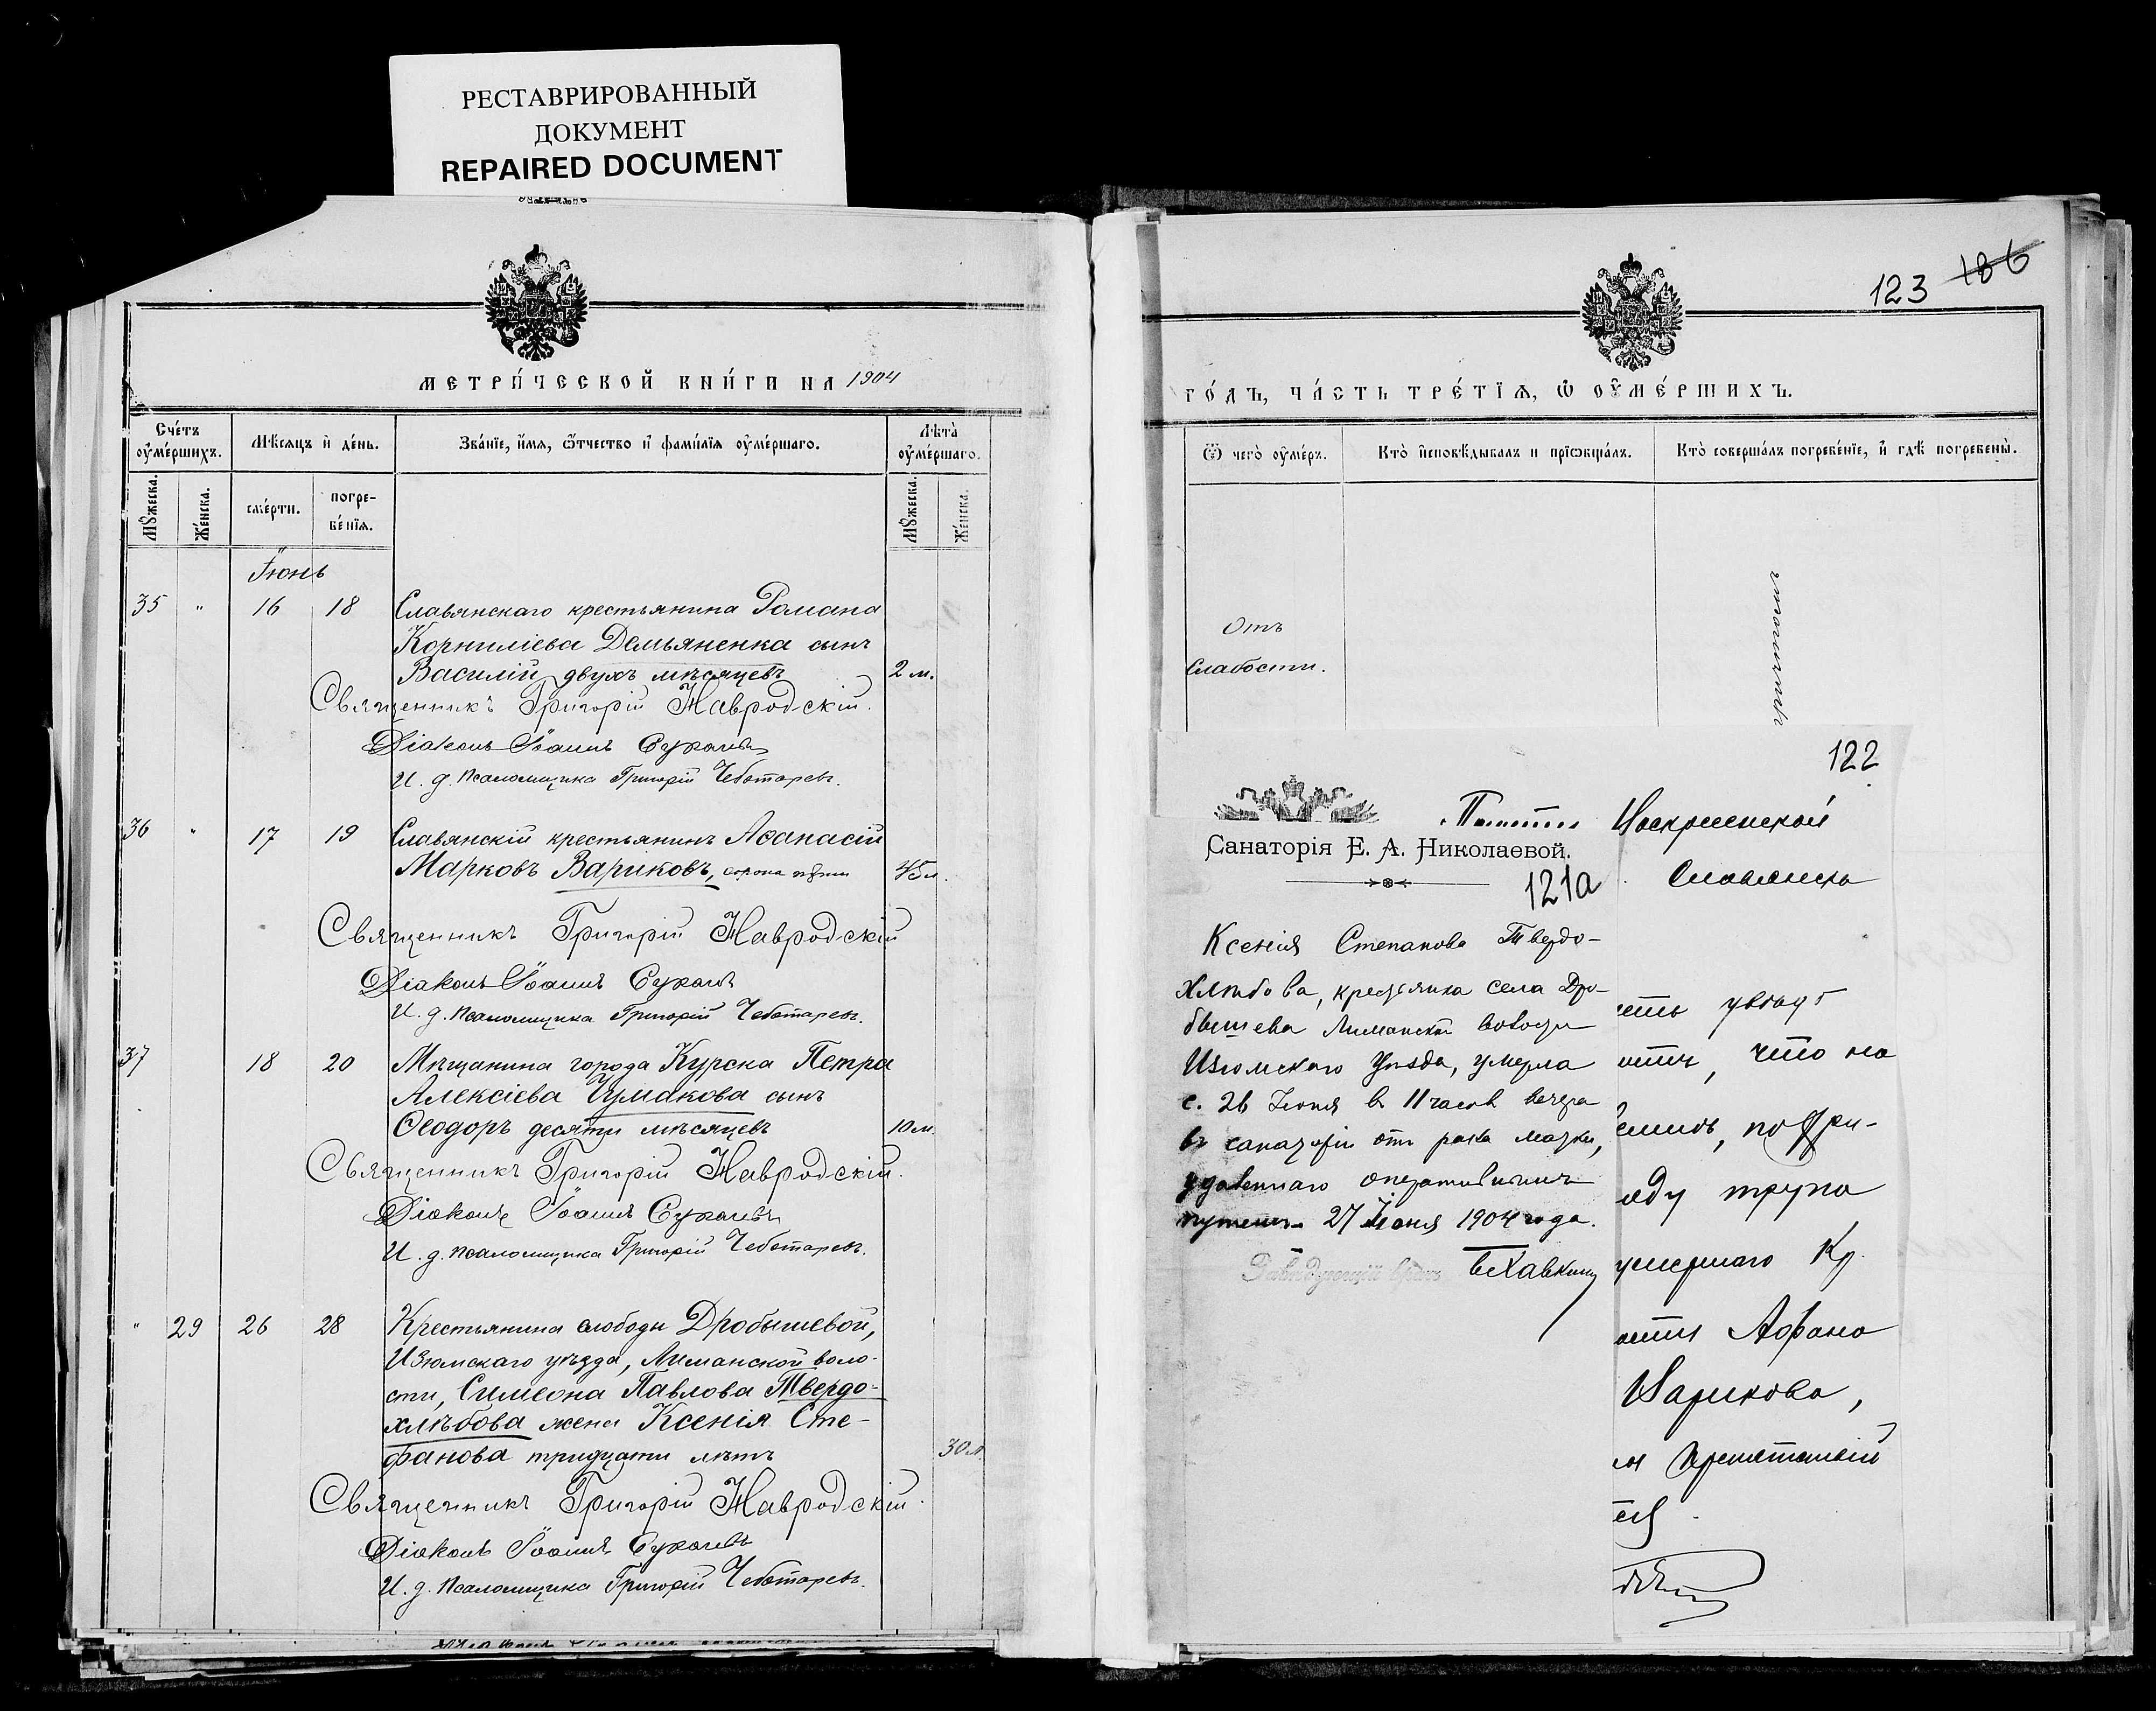 РЕСТАВРИРОВАННЫЙ
ДОКУМЕНТ
REPAIRED DOCUMENT
МЕТРИ́ЧЕСКОЙ КНИ́ГИ НА 1904
Сче́тъ оу҆ме́ршихъ.
Мѣ́сяцъ и҆ де́нь.
Зва́нїе, и҆́мя, ѻ҆́тчество и҆ фами́лїя оу҆ме́ршаго.
Лѣта̀ оу҆ме́ршаго.
Мꙋ́жеска.
Же́нска.
сме́рти.
погре-
бе́нїя.
Мꙋ́жеска.
Же́нска.
Іюнь
35 " 16 18 Славянскаго крестьянина Романа
Корниліева Демьяненка сынъ
Василій двухъ мѣсяцевъ 2 м.
Священникъ Григорій Навродскій.
Діаконъ Іоаннъ
И. д. псаломщика Григорій Чеботаревъ.
36 " 17 19 Славянскій крестьянинъ Аѳанасій
Марковъ Вариковъ, сорока пяти 45 л.
Священникъ Григорій Навродскій
Діаконъ Іоаннъ
И. д. псаломщика Григорій Чеботаревъ.
37 18 20 Мѣщанина города Курска Петра
Алексіева Чумакова сынъ
Ѳеодоръ десяти мѣсяцевъ 10 м.
Священникъ Григорій Навродскій.
Діаконъ Іоаннъ
И. д. псаломщика Григорій Чеботаревъ.
" 29 26 28 Крестьянина слободы Дробышевой,
Изюмскаго уѣзда, Лиманской воло-
сти, Симеона Павлова Твердо-
хлѣбова жена Ксенія Сте-
фанова тридцати лѣтъ 30 л.
Священникъ Григорій Навродскій.
Діаконъ Іоаннъ
И. д. псаломщика Григорій Чеботаревъ.
123 186
ГО́ДЪ, ЧА́СТЬ ТРЕ́ТЇЯ, Ѡ҆ ОУ҆МЕ́РШИХЪ.
Ѿ чегѡ̀ оу҆́меръ.
Кто̀ и҆сповѣ́дывалъ и прїѡбща́лъ.
Кто̀ соверша́лъ погребе́нїе, и҆ гдѣ̀ погребены̀.
Отъ
слабости.
122
Воскресенской
Санаторія Е. А. Николаевой.
121а
Славянска
Ксенія Степанова Твердо-
хлѣбова, крестьянка села Дро-
бышева Лиманской волости
Изюмскаго уѣзда, умерла
с. 26 Іюня в 11 часов вечера
въ санаторіи отъ рака матки,
удаленнаго оперативнымъ
путемъ 27 Іюня 1904 года.
Завѣдующій врачъ
что на
трупа
умершаго Кр.
Афана
Варикова,